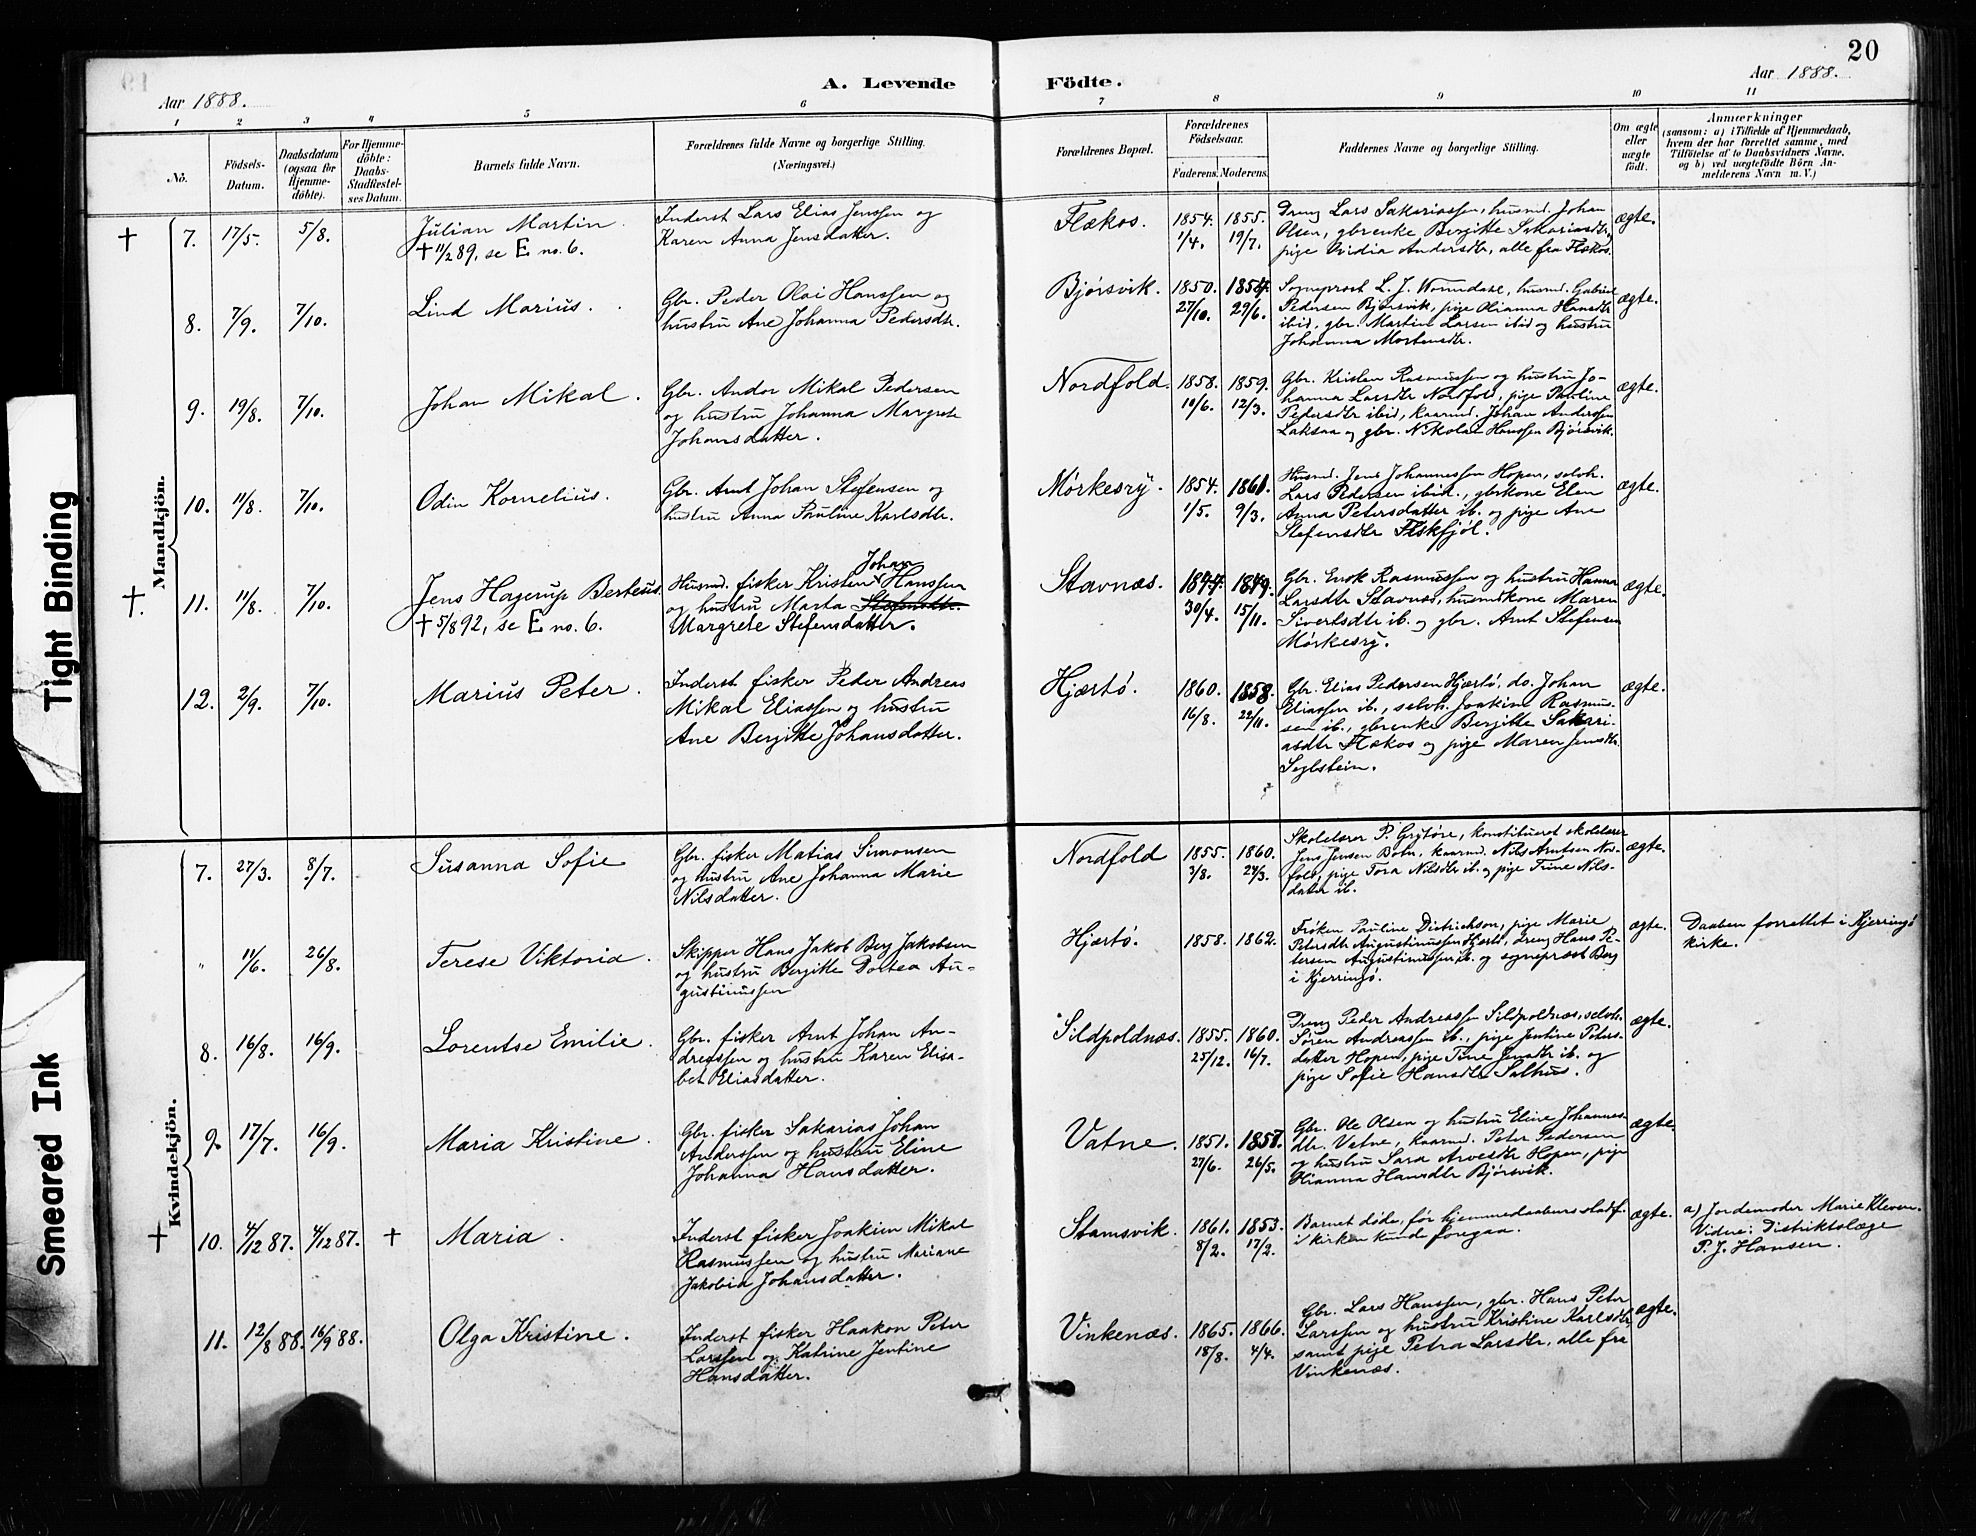 20
Aar 1888.
A. Levende
Födte.
Aar 1888.
1 2 3 4 5 6 7 8 9 10 11
No.
Födsels-Datum.
Daabsdatum (ogsaa for Hjemme-döbte).
For Hjemme-döbte: Daabs-Stadfæstel-ses Datum.
Barnets fulde Navn.
Forældrenes fulde Navne og borgerlige Stilling.
(Næringsvei.)
Forældrenes Bopæl.
Forældrenes Födselsaar.
Faderens. Moderens.
Faddernes Navne og borgerlige Stilling.
Om ægte eller uægte födt.
Anmærkninger
(saasom: a) i Tilfælde af Hjemmedaab,
hvem der har forrettet samme, med
Tilföielse af to Daabsvidners Navne,
og b) ved uægtefödte Börn An-
melderens Navn m. V.)
Mandkjön.
† 7. 17/5. 5/8. Julian Martin.
† 11/2 89, se E no. 6.
Inderst Lars Elias Jenssen og
Karen Anna Jensdatter.
Flækos. 1854. 1/4. 1855. 19/7.
Dreng Lars Sakariassen, husmd. Johan
Olsen, gbrenke Bergitte Sakariasdtr,
pige Ovidia Andersdtr, alle fra Flækos.
ægte.
8. 7/9. 7/10. Lind Marius.
Gbr. Peder Olai Hanssen og
hustru Ane Johanna Pedersdtr.
Bjørsvik. 1850. 27/10. 1854. 29/6.
Sogneprest L. J. Wormdahl, husmd. Gabriel
Pedersen Bjørsvik, pige Olianna Hansdtr
ibid, gbr. Martin Larsen ibid og hustru
Johanna Mortensdtr.
ægte.
9. 19/8. 7/10. Johan Mikal.
Gbr. Andor Mikal Pedersen
og hustru Johanna Margrete
Johansdatter.
Nordfold. 1858. 10/6. 1859. 12/3.
Gbr. Kristen Rasmussen og hustru Jo-
hanna Larsdtr Nordfold, pige Pauline
Pedersdtr ibid, kaarmd. Johan Anderssen
Laksaa og gbr. Nikolai Hanssen Bjørsvik.
ægte.
10. 11/8. 7/10. Odin Kornelius.
Gbr. Arnt Johan Stefensen og
hustru Anna Pauline Karlsdtr.
Mørkesry. 1854. 1/5. 1861. 9/3.
Husmd. Jens Johannessen Hopen, selvh.
Lars Pedersen ibid., gbrkone Elen
Anna Petersdatter ib. og pige Ane
Stefensdtr Fiskfjøl.
ægte.
†. 11. 11/8. 7/10. Jens Hagerup Berteus
† 5/8 92, se E no. 6.
Johan
Husmd. fisker Kristen Hanssen
og hustru Marta
Margrete Stefensdatter.
Stavnæs. 1844. 30/4. 1849. 15/11.
Gbr. Enok Rasmussen og hustru Hanna
Larsdtr Stavnæs, husmdkone Maren
Sivertsdtr ib. og gbr. Arnt Stefensen
Mørkesry.
ægte.
12. 2/9. 7/10. Marius Peter.
Inderst fisker Peder Andreas
Mikal Eliassen og hustru
Ane Bergitte Johansdatter.
Hjærtø. 1860. 16/8. 1858. 22/11.
Gbr. Elias Pedersen Hjærtø, do. Johan
Eliassen ib., selvh. Joakim Rasmus-
sen ib., gbrenke Bergitte Sakari-
asdtr Flækos og pige Maren Jensdtr
Seglstein.
ægte.
Kvindekjön.
7. 27/3. 8/7. Susanna Sofie
Gbr. fisker Matias Simonsen
og hustru Ane Johanna Marie
Nilsdatter.
Nordfold 1855. 3/8. 1860. 24/3.
Skolelærer P. Grytøre, konstitueret skolelærer
Jens Jensen Botn, kaarmd. Nils Arntsen Nor-
fold, pige Tora Nilsdtr ib. og pige Trine Nils-
datter ib.
ægte.
„ 11/6. 26/8. Terese Viktoria.
Skipper Hans Jakob Berg Jakobsen
og hustru Bergitte Dortea Au-
gustinussen
Hjærtø. 1858. 1862.
Frøken Pauline Dietrichson, pige Marie
Petersdtr Augustinussen Hjærtø, dreng Hans Pe-
tersen Augustinussen ib. og sogneprest Berg
i Kjerringø.
ægte.
Daaben forrettet i Kjerringø
kirke.
8. 16/8. 16/9. Lorentse Emilie.
Gbr. fisker Arnt Johan An-
dreassen og hustru Karen Elisa-
bet Eliasdatter.
Sildpoldnæs. 1855. 25/12. 1860. 16/7.
Dreng Peder Andreassen Sildpoldnæs, selvh.
Søren Andreassen ib., pige Jentine Peters-
datter Hopen, pige Trine Jensdtr ib. og
pige Sofie Hansdtr Salhus.
ægte.
9. 17/7. 16/9. Maria Kristine.
Gbr. fisker Sakarias Johan
Anderssen og hustru Eline
Johanna Hansdatter.
Vatne. 1851. 27/6. 1857. 26/5.
Gbr. Ole Olsen og hustru Eline Johannes-
dtr. Vatne, kaarmd. Peter Pedersen
og hustru Sara Arvesdtr Hopen, pige
Olianna Hansdtr Bjørsvik.
ægte.
† 10. 4/12 87. 4/12 87. † Maria.
Inderst fisker Joakim Mikal
Rasmussen og hustru Mariane
Jakobia Johansdatter.
Stamsvik. 1861. 8/2. 1853. 17/2.
Barnet døde, før hjemmedaabens stadf.
i kirken kunde foregaa.
ægte.
a) Jordemoder Marie Kleven.
Vidne: Distriktslæge
P. J. Hansen.
11. 12/8 88. 16/9 88. Olga Kristine.
Inderst fisker Haakon Peter
Larssen og Katrine Jentine
Hansdatter.
Vinkenæs. 1865. 18/8. 1866. 4/4.
Gbr. Lars Hanssen, gbr. Hans Peter
Larssen og hustru Kristine Karlsdtr,
samt pige Petra Larsdtr, alle fra
Vinkenæs.
ægte.
Tight Binding
Smeared Ink